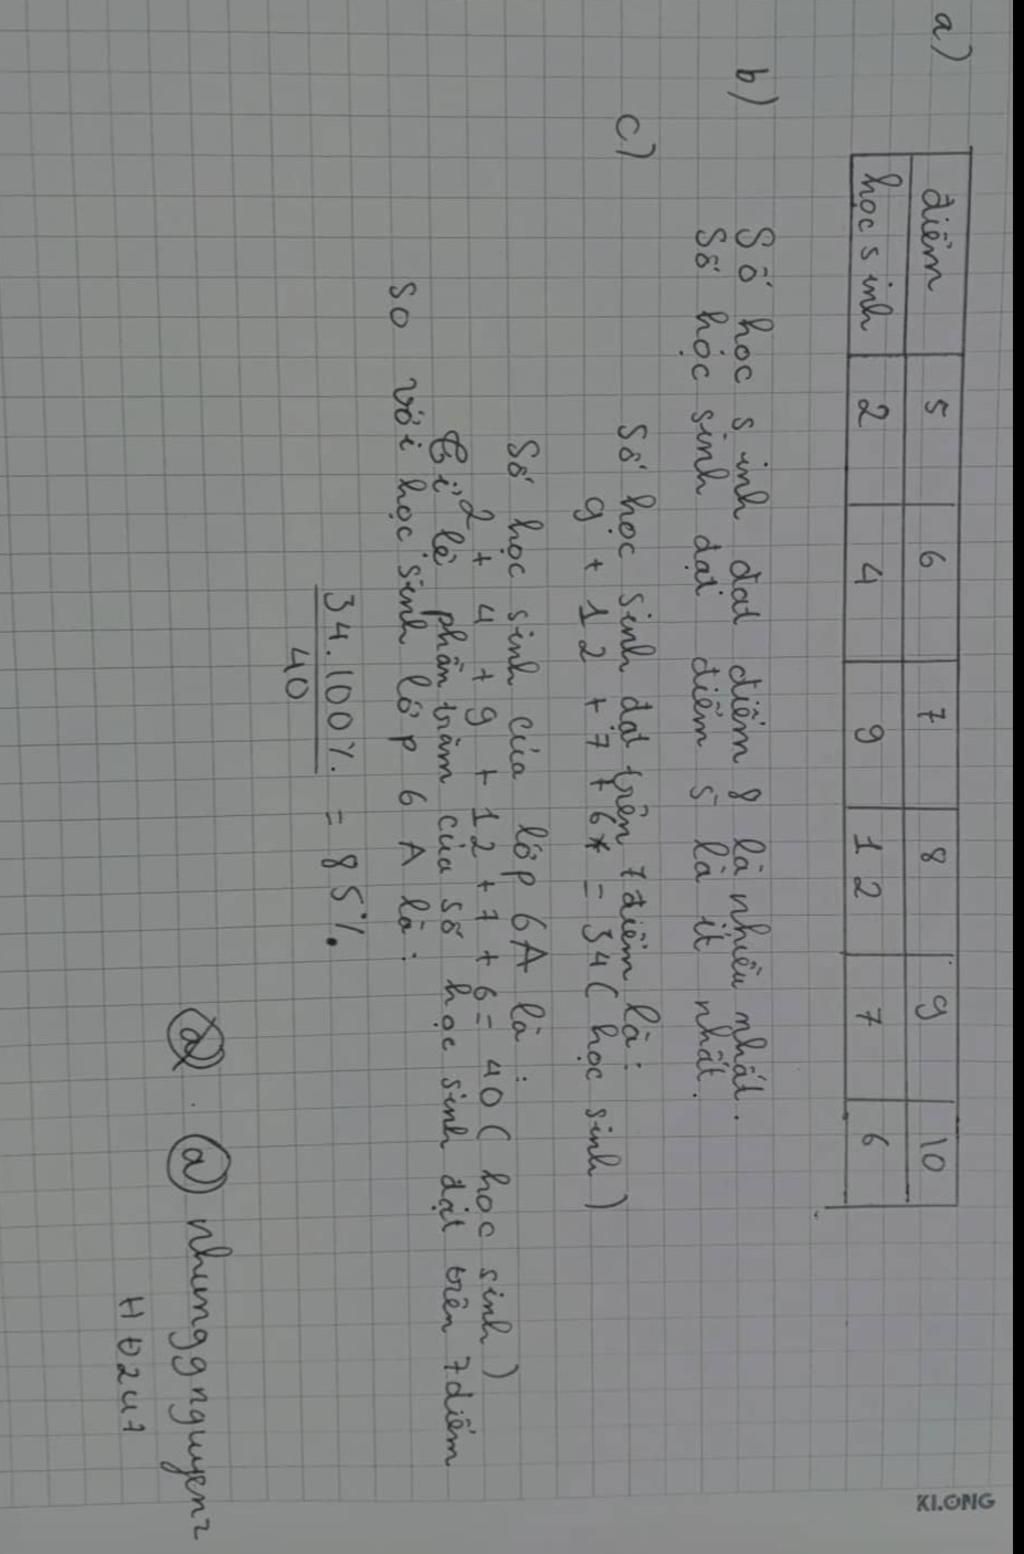 a)
điểm 5 6 7 8 9 10
học sinh 2 4 9 12 7 6
b) Số học sinh đạt điểm 8 là nhiều nhất.
Số học sinh đạt điểm 5 là ít nhất.
c) Số học sinh đạt trên 7 điểm là:
9 + 12 + 7 + 6 = 34 ( học sinh )
Số học sinh của lớp 6A là:
2 + 4 + 9 + 12 + 7 + 6 = 40 ( học sinh )
Tỉ lệ phần trăm của số học sinh đạt trên 7 điểm
so với học sinh lớp 6A là:
34.100% = 85%.
40
@nhunggnguyenz
HĐ247
KLONG